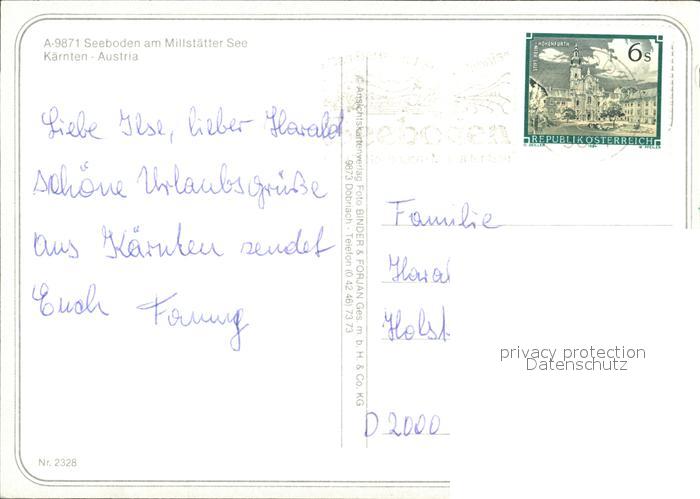 A-9871 Seeboden am Millstätter See
Kärnten - Austria
Liebe Ilse, lieber Harald
schöne Urlaubsgrüße
aus Kärnten sendet
Euch Fanny
Nr. 2328
© Ansichtskartenverlag Foto BINDER & FORJAN Ges. m. b. H. & Co. KG
9873 Döbriach - Telefon (0 42 46) 73 73
STIFT REIN-HOHENFURTH
6s
REPUBLIK ÖSTERREICH
Familie
Haral
Holst
D 2000
privacy protection
Datenschutz